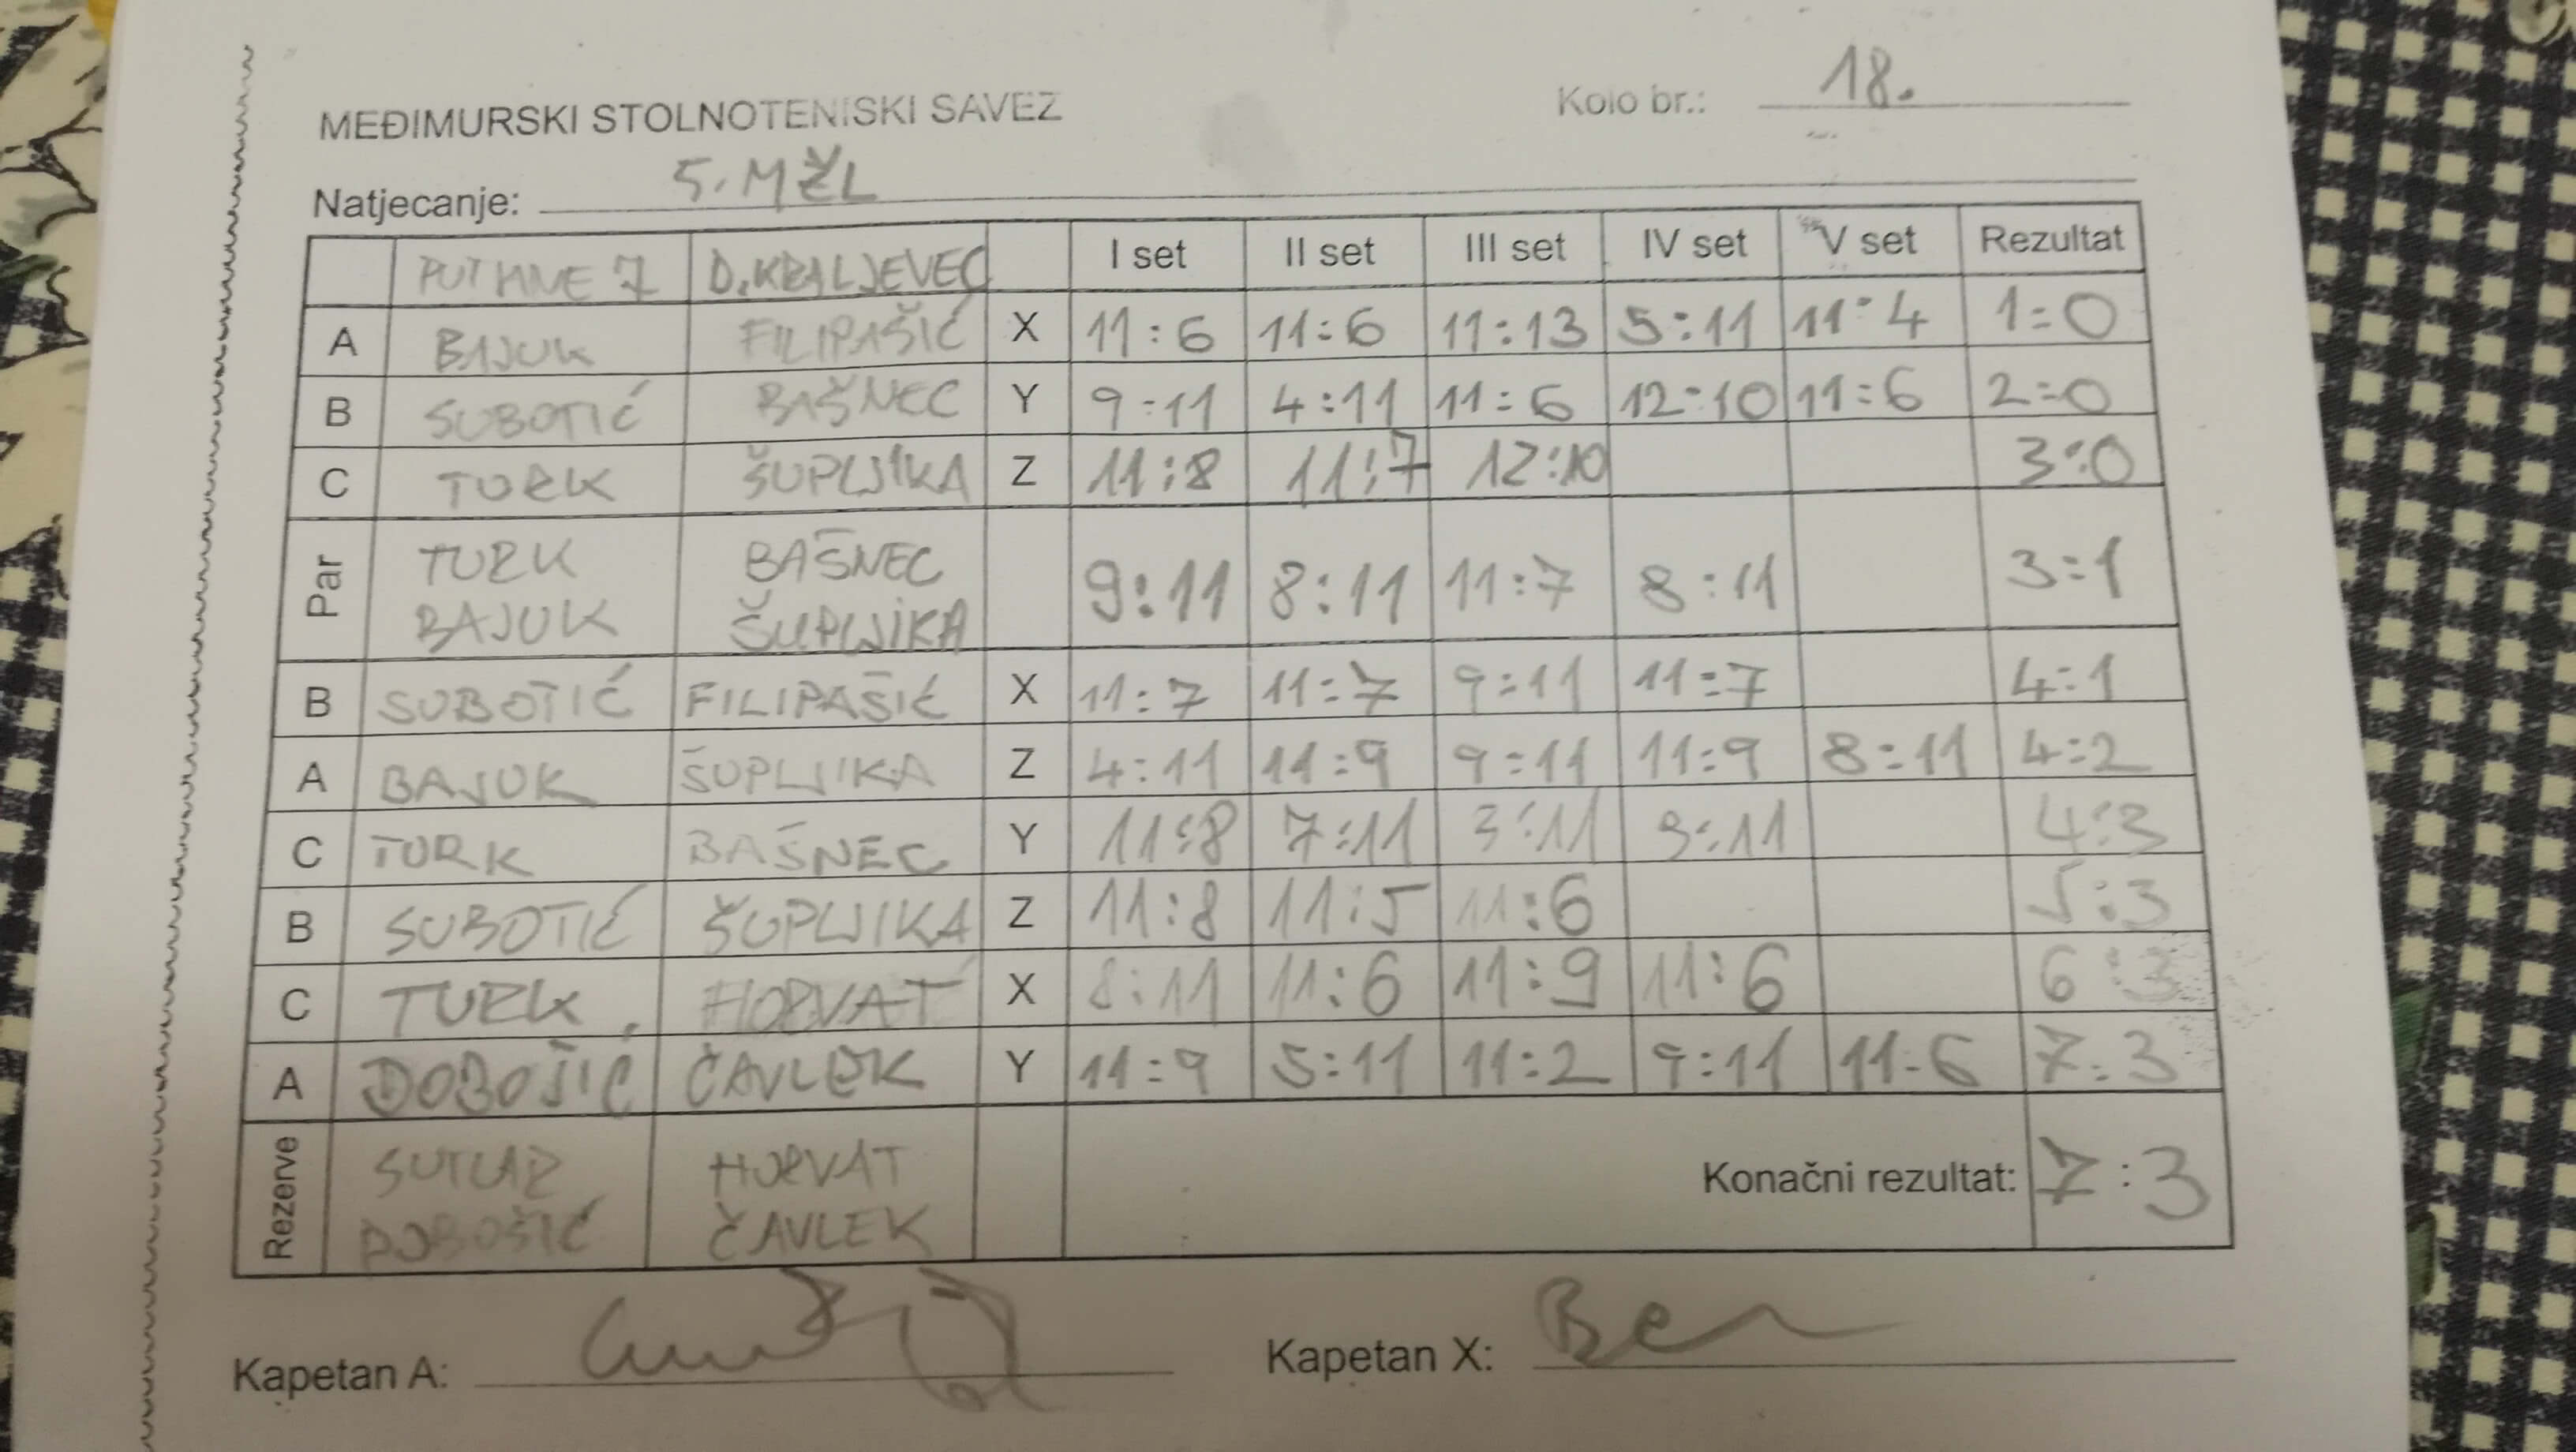 MEĐIMURSKI STOLNOTENISKI SAVEZ
Kolo br.: 18.
Natjecanje: 5. MŽL
PUTJANE 7 D.KRALJEVEC I set II set III set IV set V set Rezultat
A BAJUK FILIPAŠIĆ X 11:6 11:6 11:13 5:11 11:4 1:0
B SUBOTIĆ BAŠNEC Y 9:11 4:11 11:6 12:10 11:6 2:0
C TURK ŠUPLJIKA Z 11:8 11:7 12:10 3:0
Par TURK BAŠNEC 9:11 8:11 11:7 8:11 3:1
BAJUK ŠUPLJIKA
B SUBOTIĆ FILIPAŠIĆ X 11:7 11:7 9:11 11:7 4:1
A BAJUK ŠUPLJIKA Z 4:11 11:9 9:11 11:9 8:11 4:2
C TURK BAŠNEC Y 11:8 7:11 3:11 9:11 4:3
B SUBOTIĆ ŠUPLJIKA Z 11:8 11:5 11:6 5:3
C TURK HORVAT X 8:11 11:6 11:9 11:6 6:3
A DOBOŠIĆ ČAVLEK Y 11:9 5:11 11:2 9:11 11-6 7:3
Rezerve SUTLAR HORVAT Konačni rezultat: 7:3
DOBOŠIĆ ČAVLEK
Kapetan A: Kapetan X: